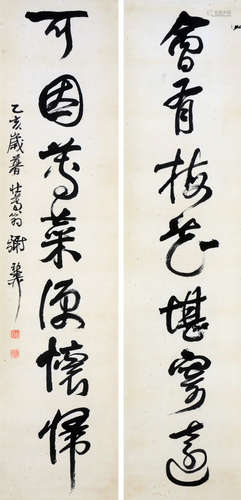 會有梅花堪寄遠
可因蓴菜便懷歸
乙亥歲暮 翁 謝